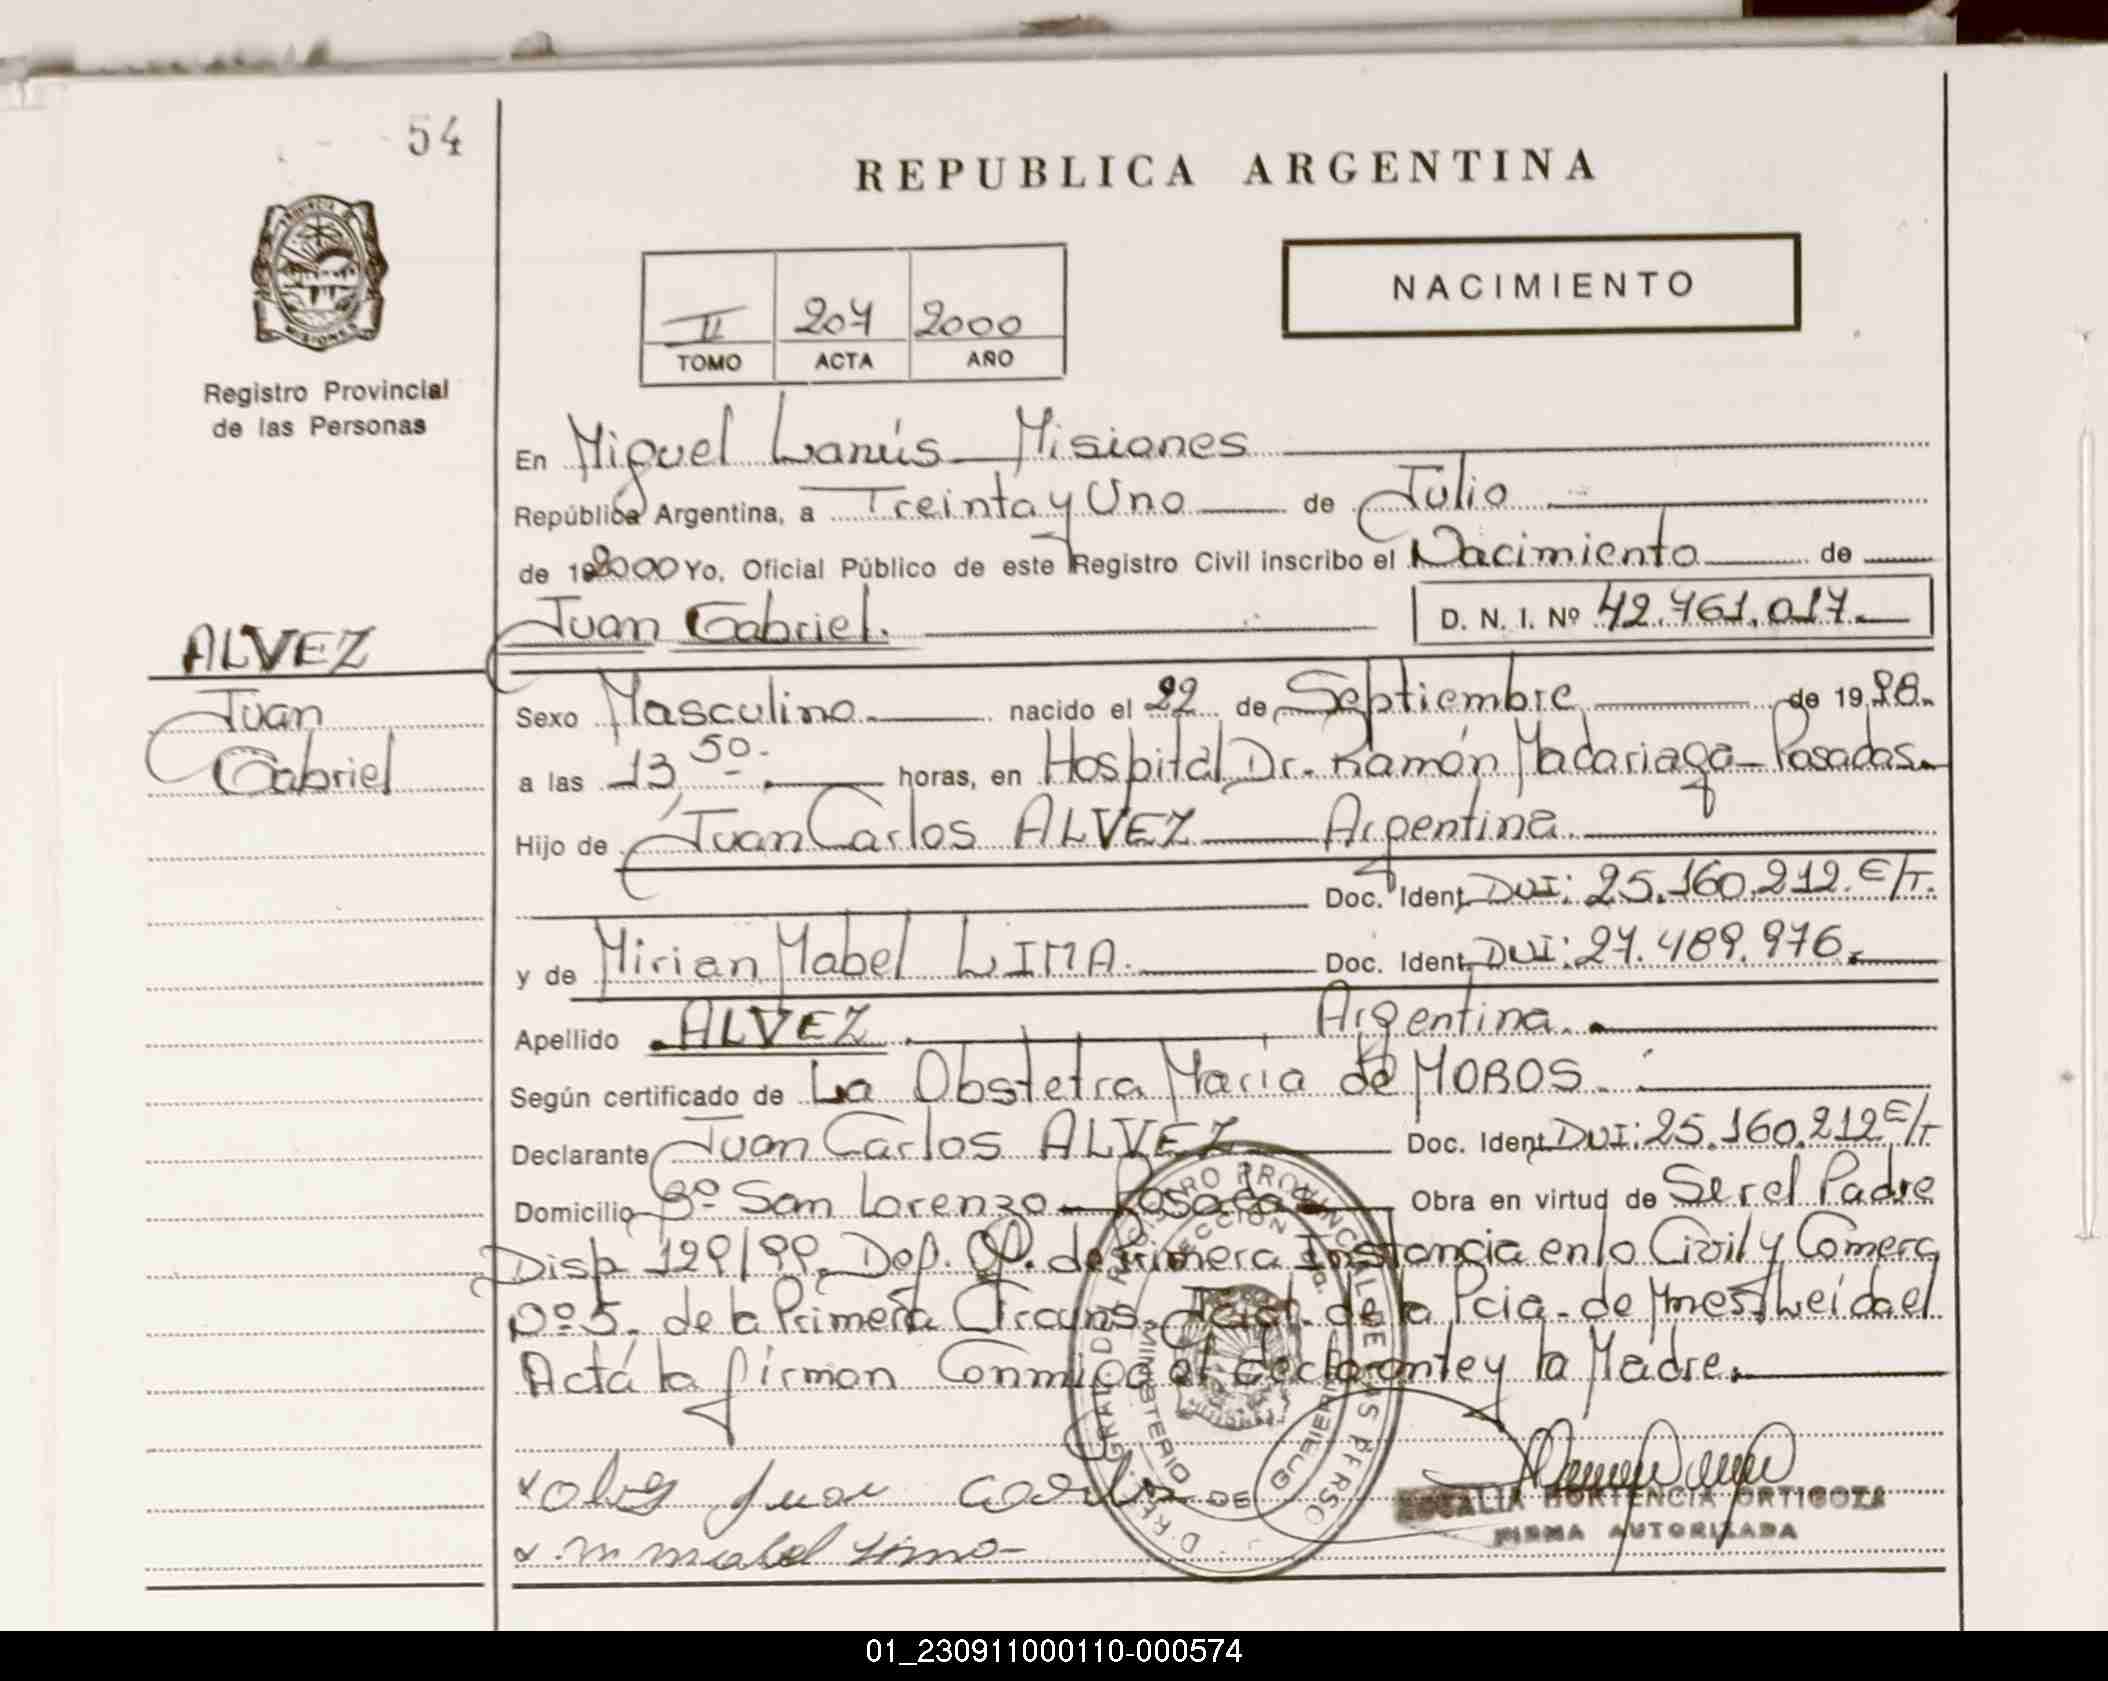 54
REPUBLICA ARGENTINA
NACIMIENTO
II 207 2000
TOMO ACTA AÑO
Registro Provincial
de las Personas
En Miguel Lanús - Misiones
República Argentina, a Treinta y Uno de Julio
de 2000 Yo, Oficial Público de este Registro Civil inscribo el Nacimiento de
Juan Gabriel. D. N. I. Nº 42.761.017.
ALVEZ
Juan
Gabriel
Sexo Masculino nacido el 22 de Septiembre de 19
a las 13 50. horas, en Hospital Dr. Ramón Madariaga - Posadas.
Hijo de Juan Carlos ALVEZ Argentina
Doc. Ident. DUI: 25.160.212. E/T.
y de Mirian Mabel LIMA. Doc. Ident. DUI: 27.489.976.
Apellido ALVEZ Argentina.
Según certificado de La Obstetra Maria de MOROS.
Declarante Juan Carlos ALVEZ Doc. Ident. DUI: 25.160.212 E/T
Domicilio San Lorenzo - Posadas Obra en virtud de Ser el Padre
Disp 129/99. Def. Of. de Primera Instancia en lo Civil y Comerc
nº 5. de la Primera Circuns. Jud. de la Pcia. de Mnes. Leida el
Acta la firman Conmigo el declarante y la Madre.
Juan Carlos
ROSALIA HORTENCIA ORTIGOZA
FIRMA AUTORIZADA
REGISTRO PROVINCIAL DE LAS PERSO
MINISTERIO DE GOBIERNO
MISIONES
01_230911000110-000574